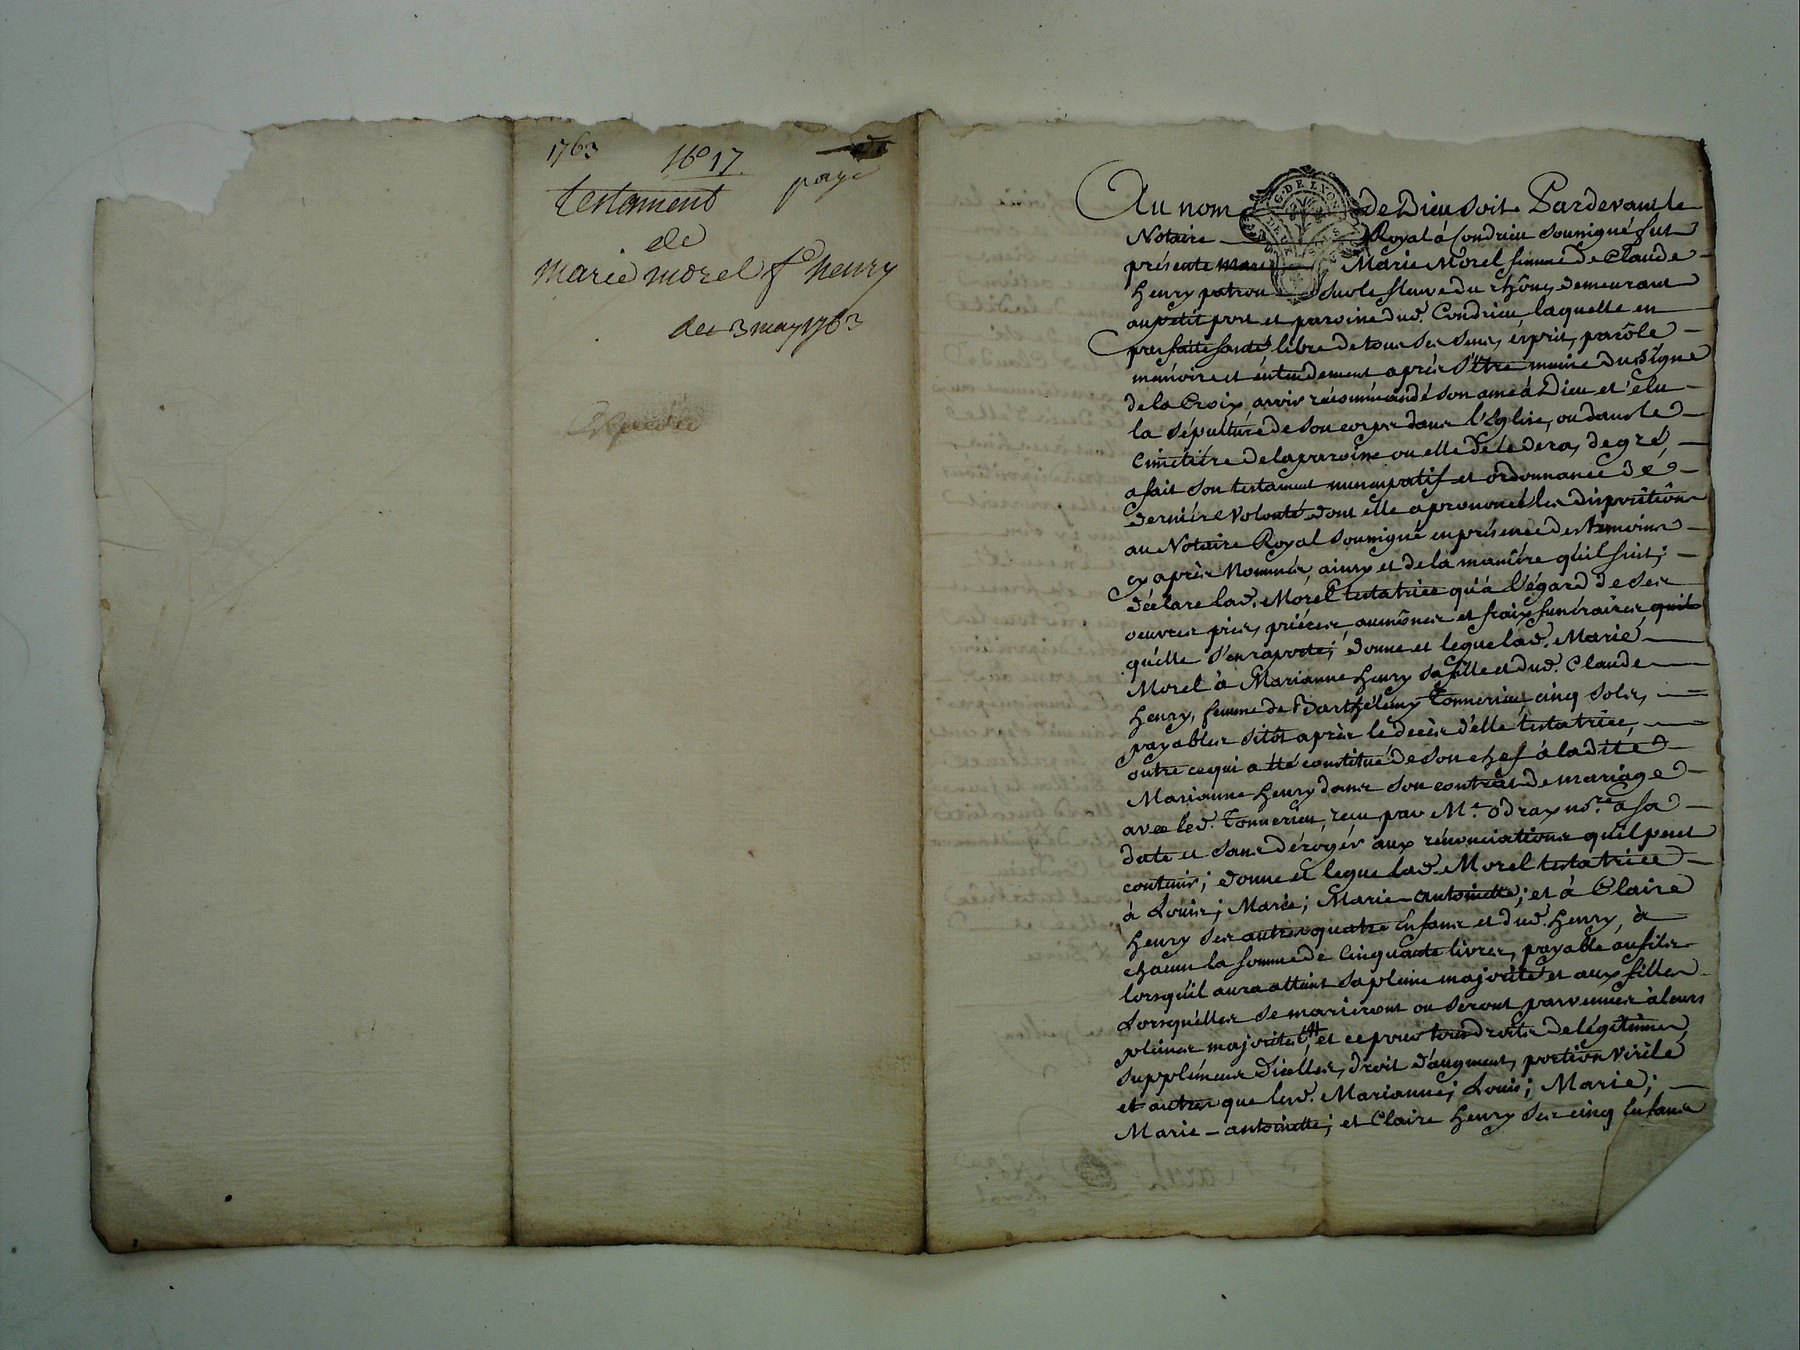 1763
No 17
payé
testament
de
marie morel fe henry
du 3 may 1763
Expedié
G. DE LYON
Au nom de Dieu soit Pardevant le
Notaire Royal à Condrieu soussigné fut
présente Marie Morel femme de Claude
henry patron sur le fleuve du rhône, demeurant
au petit port et paroisse dud. Condrieu, laquelle en
parfaite santé, libre de tous ses sens, ésprit, parôle
mémoire et éntendement après s'être munie du Signe
de la Croix, avoir récommandé son ame à Dieu et élu
la sépulture de son corps dans l'Eglise, ou dans le
Cimetiére de la paroisse ou elle décédera, de gré,
a fait son testament nuncupatif et ordonnance dé
derniére volonté dont elle a prononcé les dispositions
au Notaire Royal soussigné en présence des temoins
cy après Nommés, ainsy et de la maniére qu'il suit;
déclare lad. Morel testatrice qu'à l'égard de ses
oeuvres pies, priéres, aumônes et fraix funéraires, quil
qu'elle s'en raporte; donne et legue lad. Marie
Morel à Marianne henry sa fille et dud. Claude
henry, femme de Barthélemy Tonnerieu, cinq sols,
payables sitôt après le décès d'elle testatrice,
outre ce qui a été constitué de son chef à la dité
Marianne henry dans son contrat de mariage
avec led. Tonnerieu, reçu par Me. Odrax nore. à sa
date et sans déroger aux rénonciations qu'il peut
contenir; donne et legue lad. Morel testatrice
à Louis; Marie; Marie-antoinette; et à Claire
henry ses autres quatre Enfans et dud. henry, à
chacun la somme de Cinquante livres, payable au fils
lorsqu'il aura atteint sa pleine majorité et aux filles
Lorsqu'elles se marieront ou seront parvenues à leurs
pleines majorités, et ce pour tous droits de légitimes,
supplémens d'icelles, droit d'augment, portion virile
et autres que lesd. Marianne; Louis; Marie;
Marie-antoinette; et Claire henry ses cinq Enfans